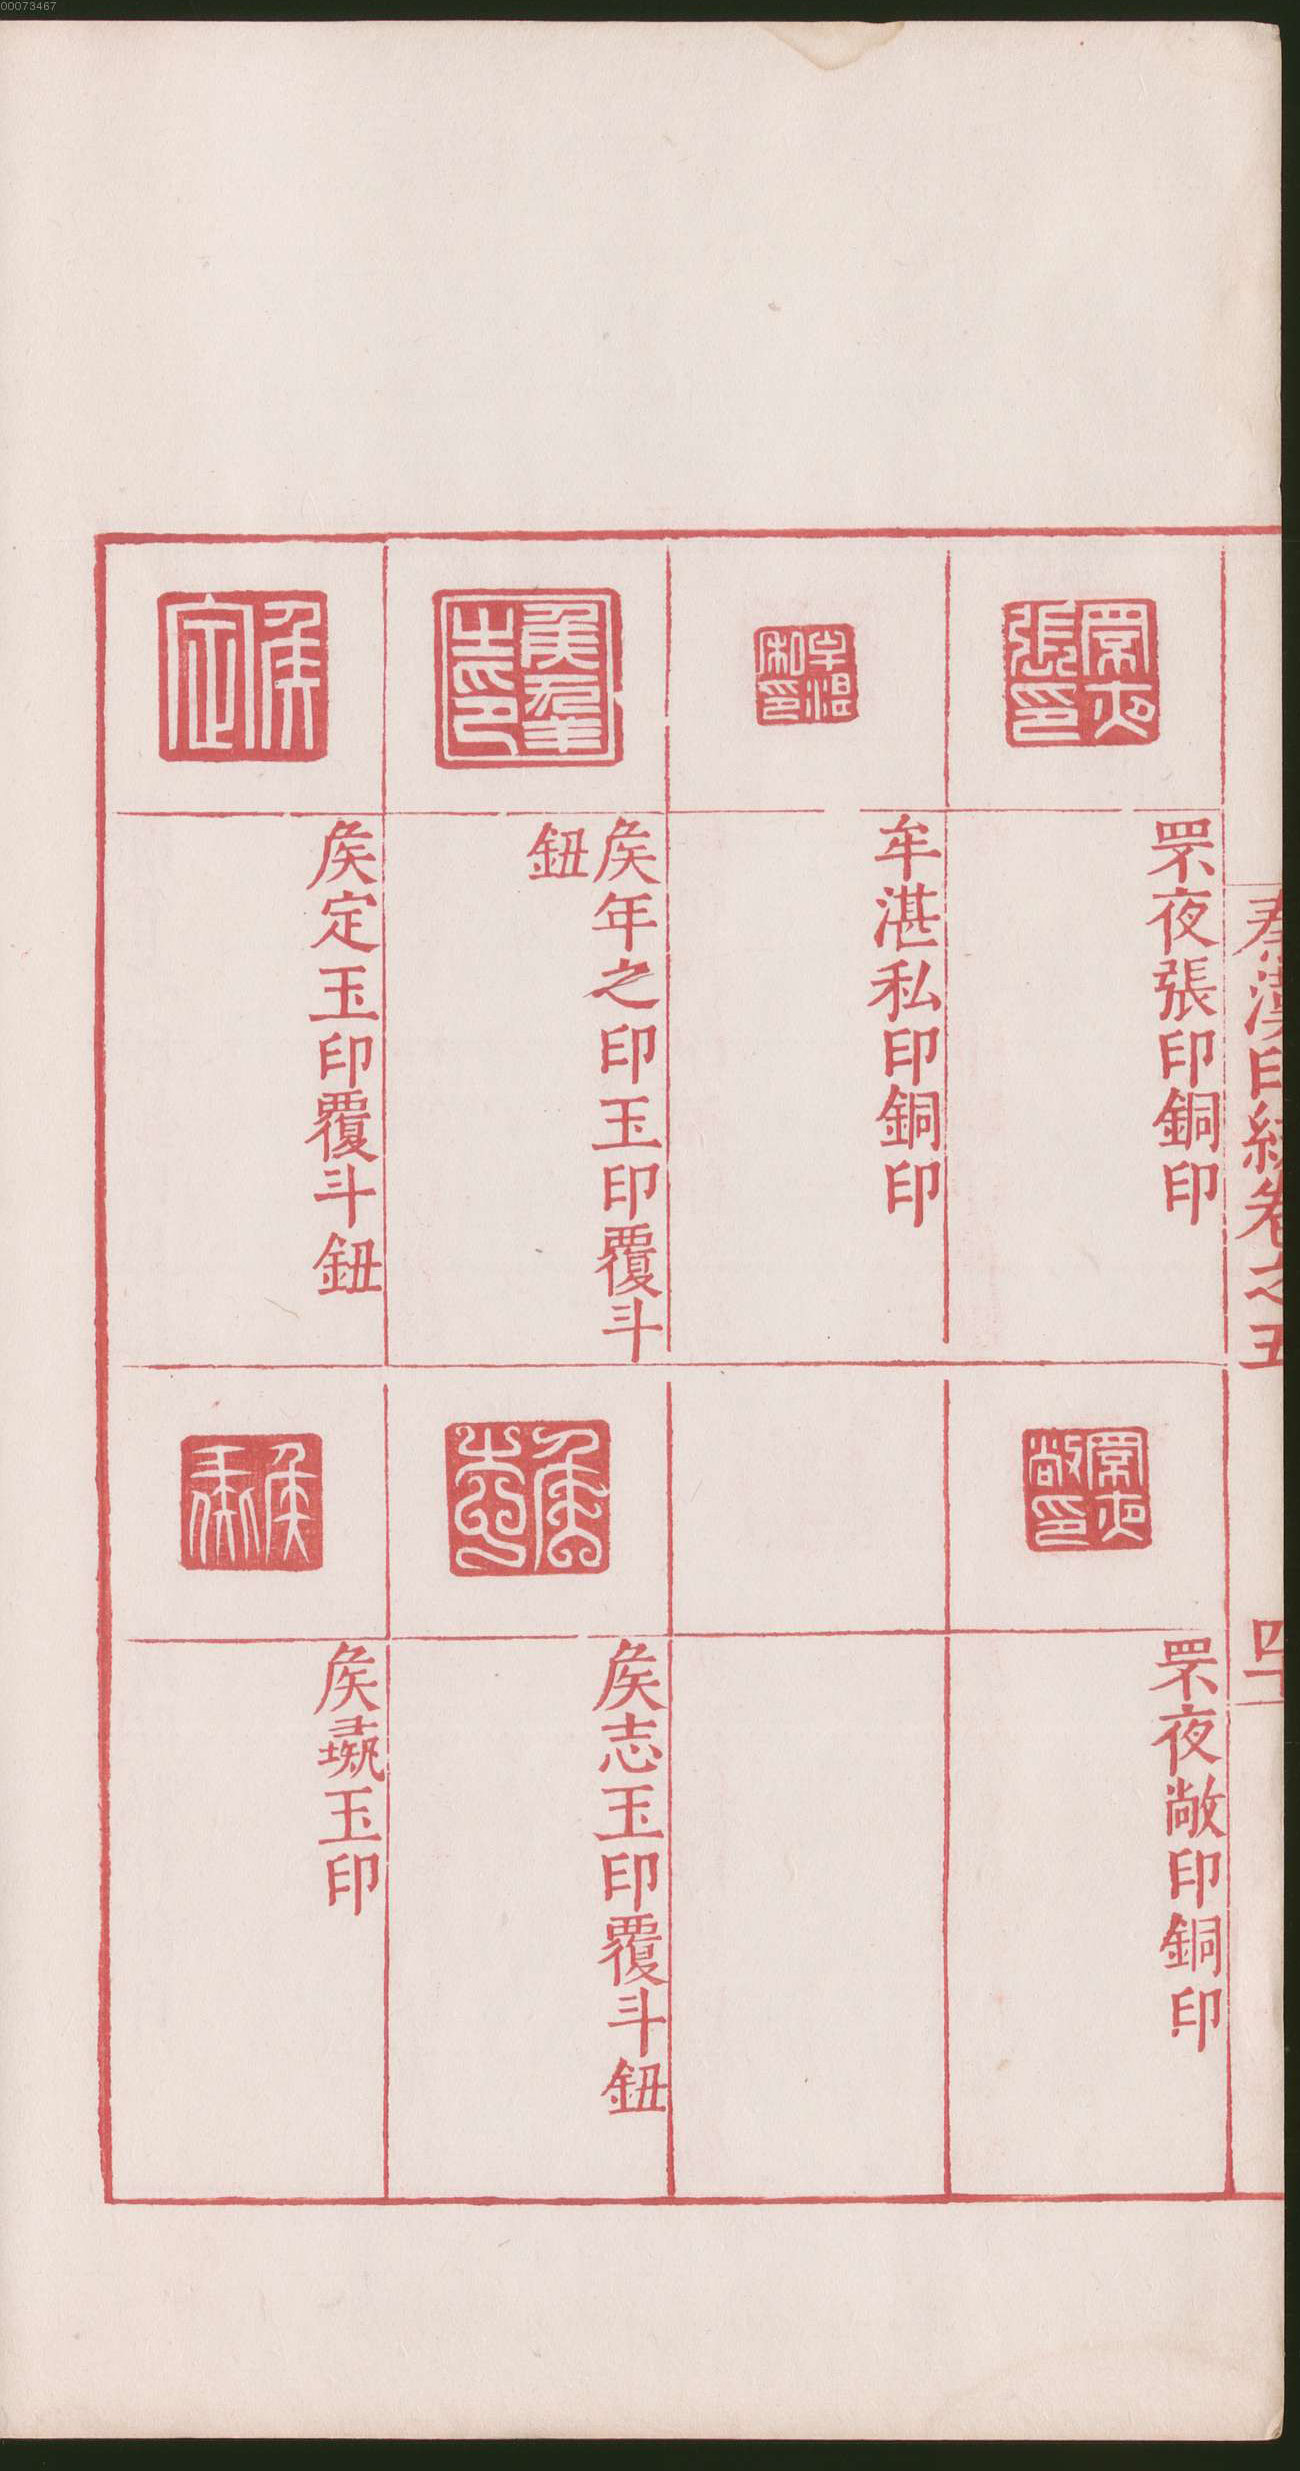 00073467
秦漢印統卷之五
四十
罘夜張印銅印
牟湛私印銅印
矦年之印玉印覆斗
鈕
矦定玉印覆斗鈕
罘夜敞印銅印
矦志玉印覆斗鈕
矦玉印